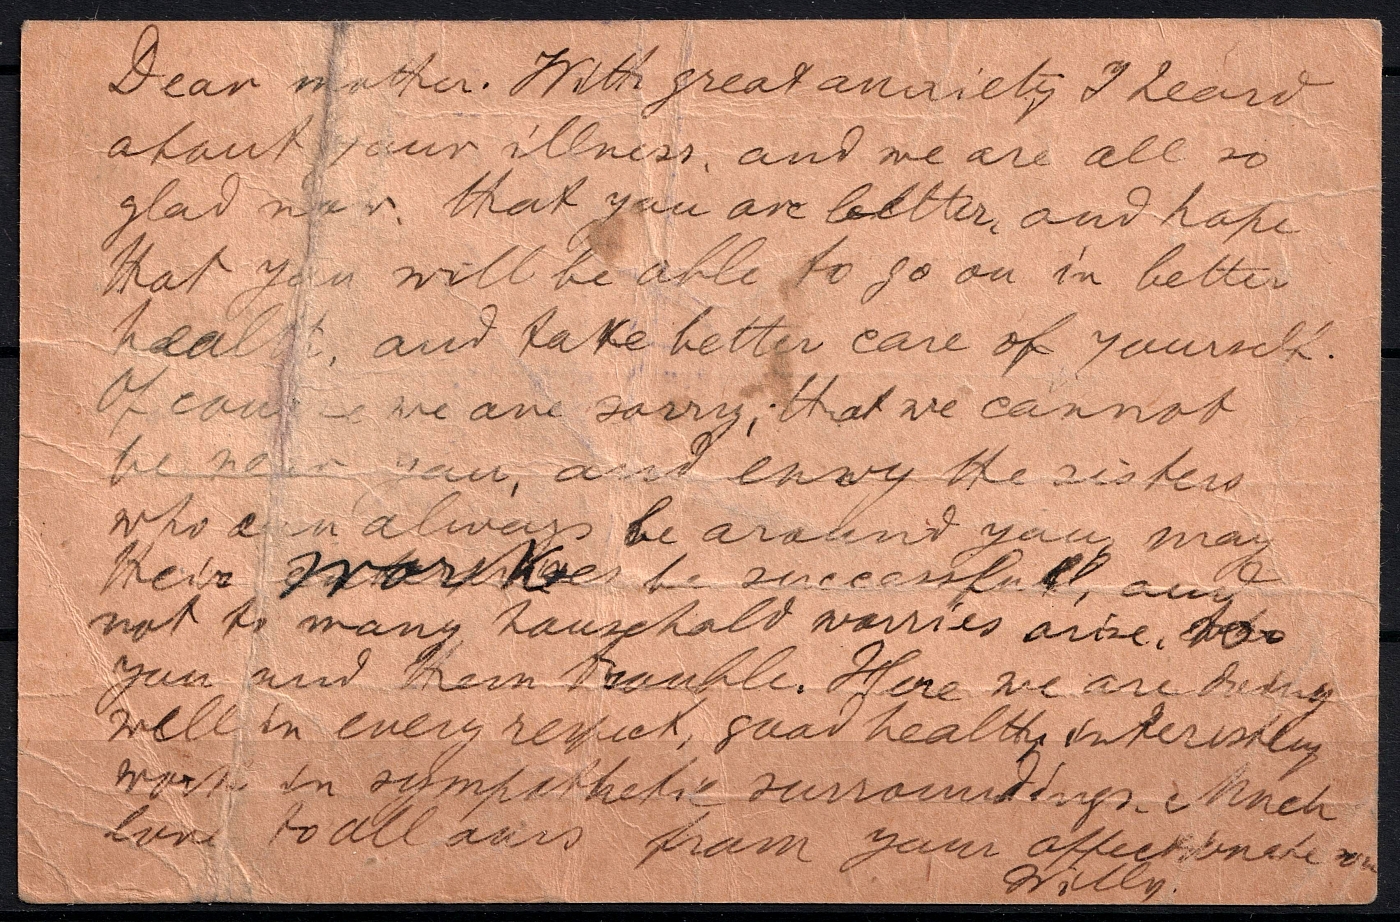 Dear mother. With great anxiety I heard
about your illness, and we are all so
glad now. that you are better, and hope
that you will be able to go on in better
health, and take better care of yourself.
Of course we are sorry, that we cannot
be near you, and envy the sisters
who can always be around you, may
their work be successful, and
not to many household worries arise,
you and them trouble. Here we are doing
well in every respect, good health, interesting
work in sympathetic surroundings. Much
love to all ours from your affectionate son
Willy.